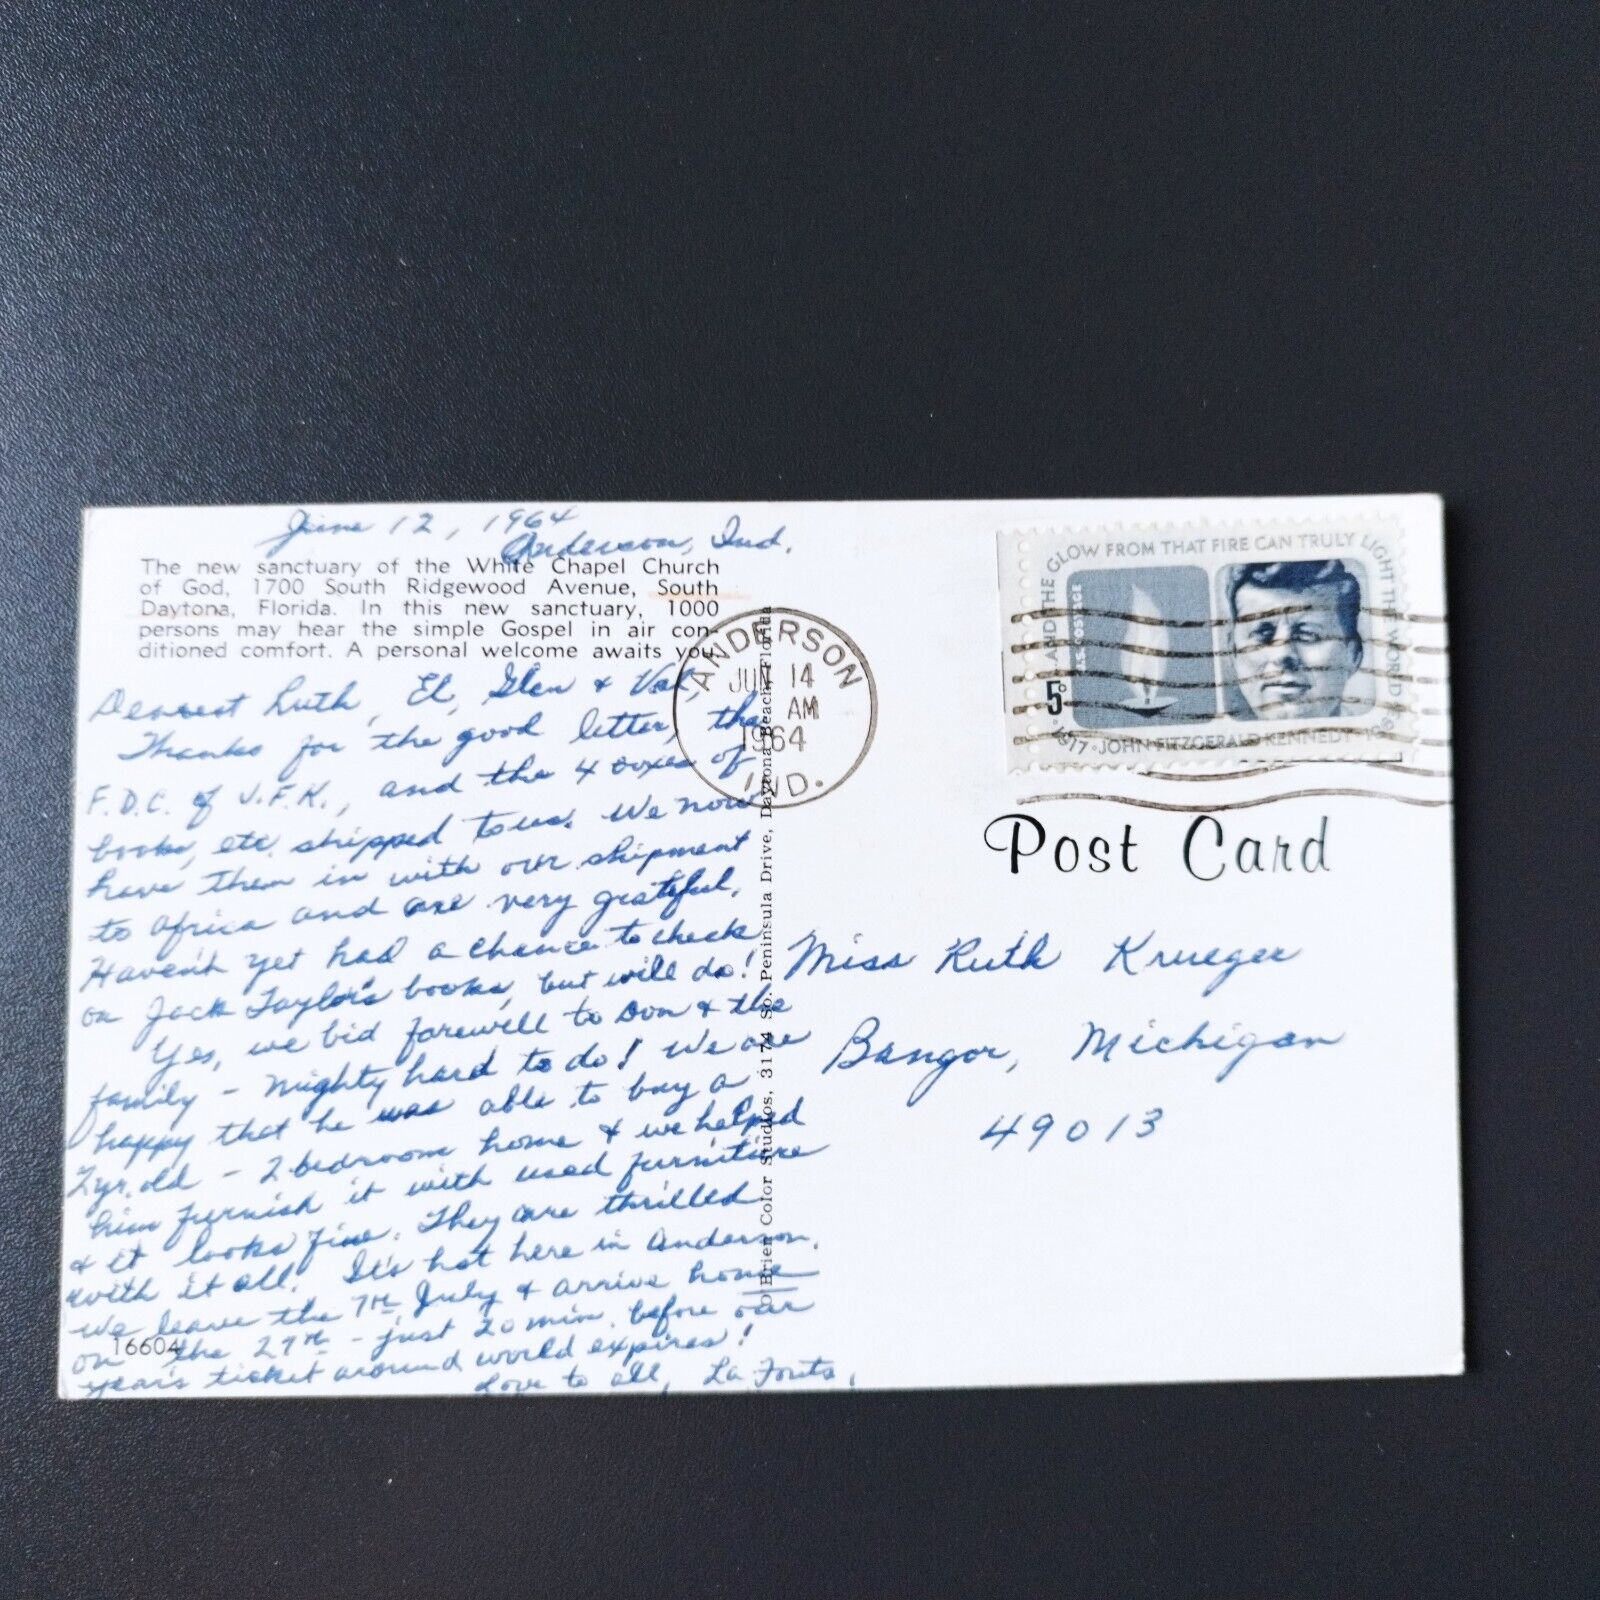 June 12, 1964
Anderson, Ind.
The new sanctuary of the White Chapel Church
of God, 1700 South Ridgewood Avenue, South
Daytona, Florida. In this new sanctuary, 1000
persons may hear the simple Gospel in air con-
ditioned comfort. A personal welcome awaits you.
Dearest Ruth, El, Glen & Val,
Thanks for the good letter, the
F.D.C. of J.F.K., and the 4 boxes of
books, etc. shipped to us. We now
have them in with our shipment
to Africa and are very grateful.
Haven't yet had a chance to check
on Jack Taylor's books, but will do!
Yes, we bid farewell to Don & the
family - mighty hard to do! We are
happy that he was able to buy a
2 yr. old - 2 bedroom home & we helped
him furnish it with used furniture
& it looks fine. They are thrilled
with it all. It's hot here in Anderson.
We leave the 7th July & arrive home
on the 27th - just 20 min. before our
year's ticket around world expires!
Love to all, La Fonts.
16604
O'Brien Color Studios, 3174 So. Peninsula Drive, Daytona Beach, Florida
ANDERSON
JUN 14
AM
1964
IND.
AND THE GLOW FROM THAT FIRE CAN TRULY LIGHT THE WORLD
U.S. POSTAGE
5¢
1917 · JOHN FITZGERALD KENNEDY · 196
Post Card
Miss Ruth Krueger
Bangor, Michigan
49013